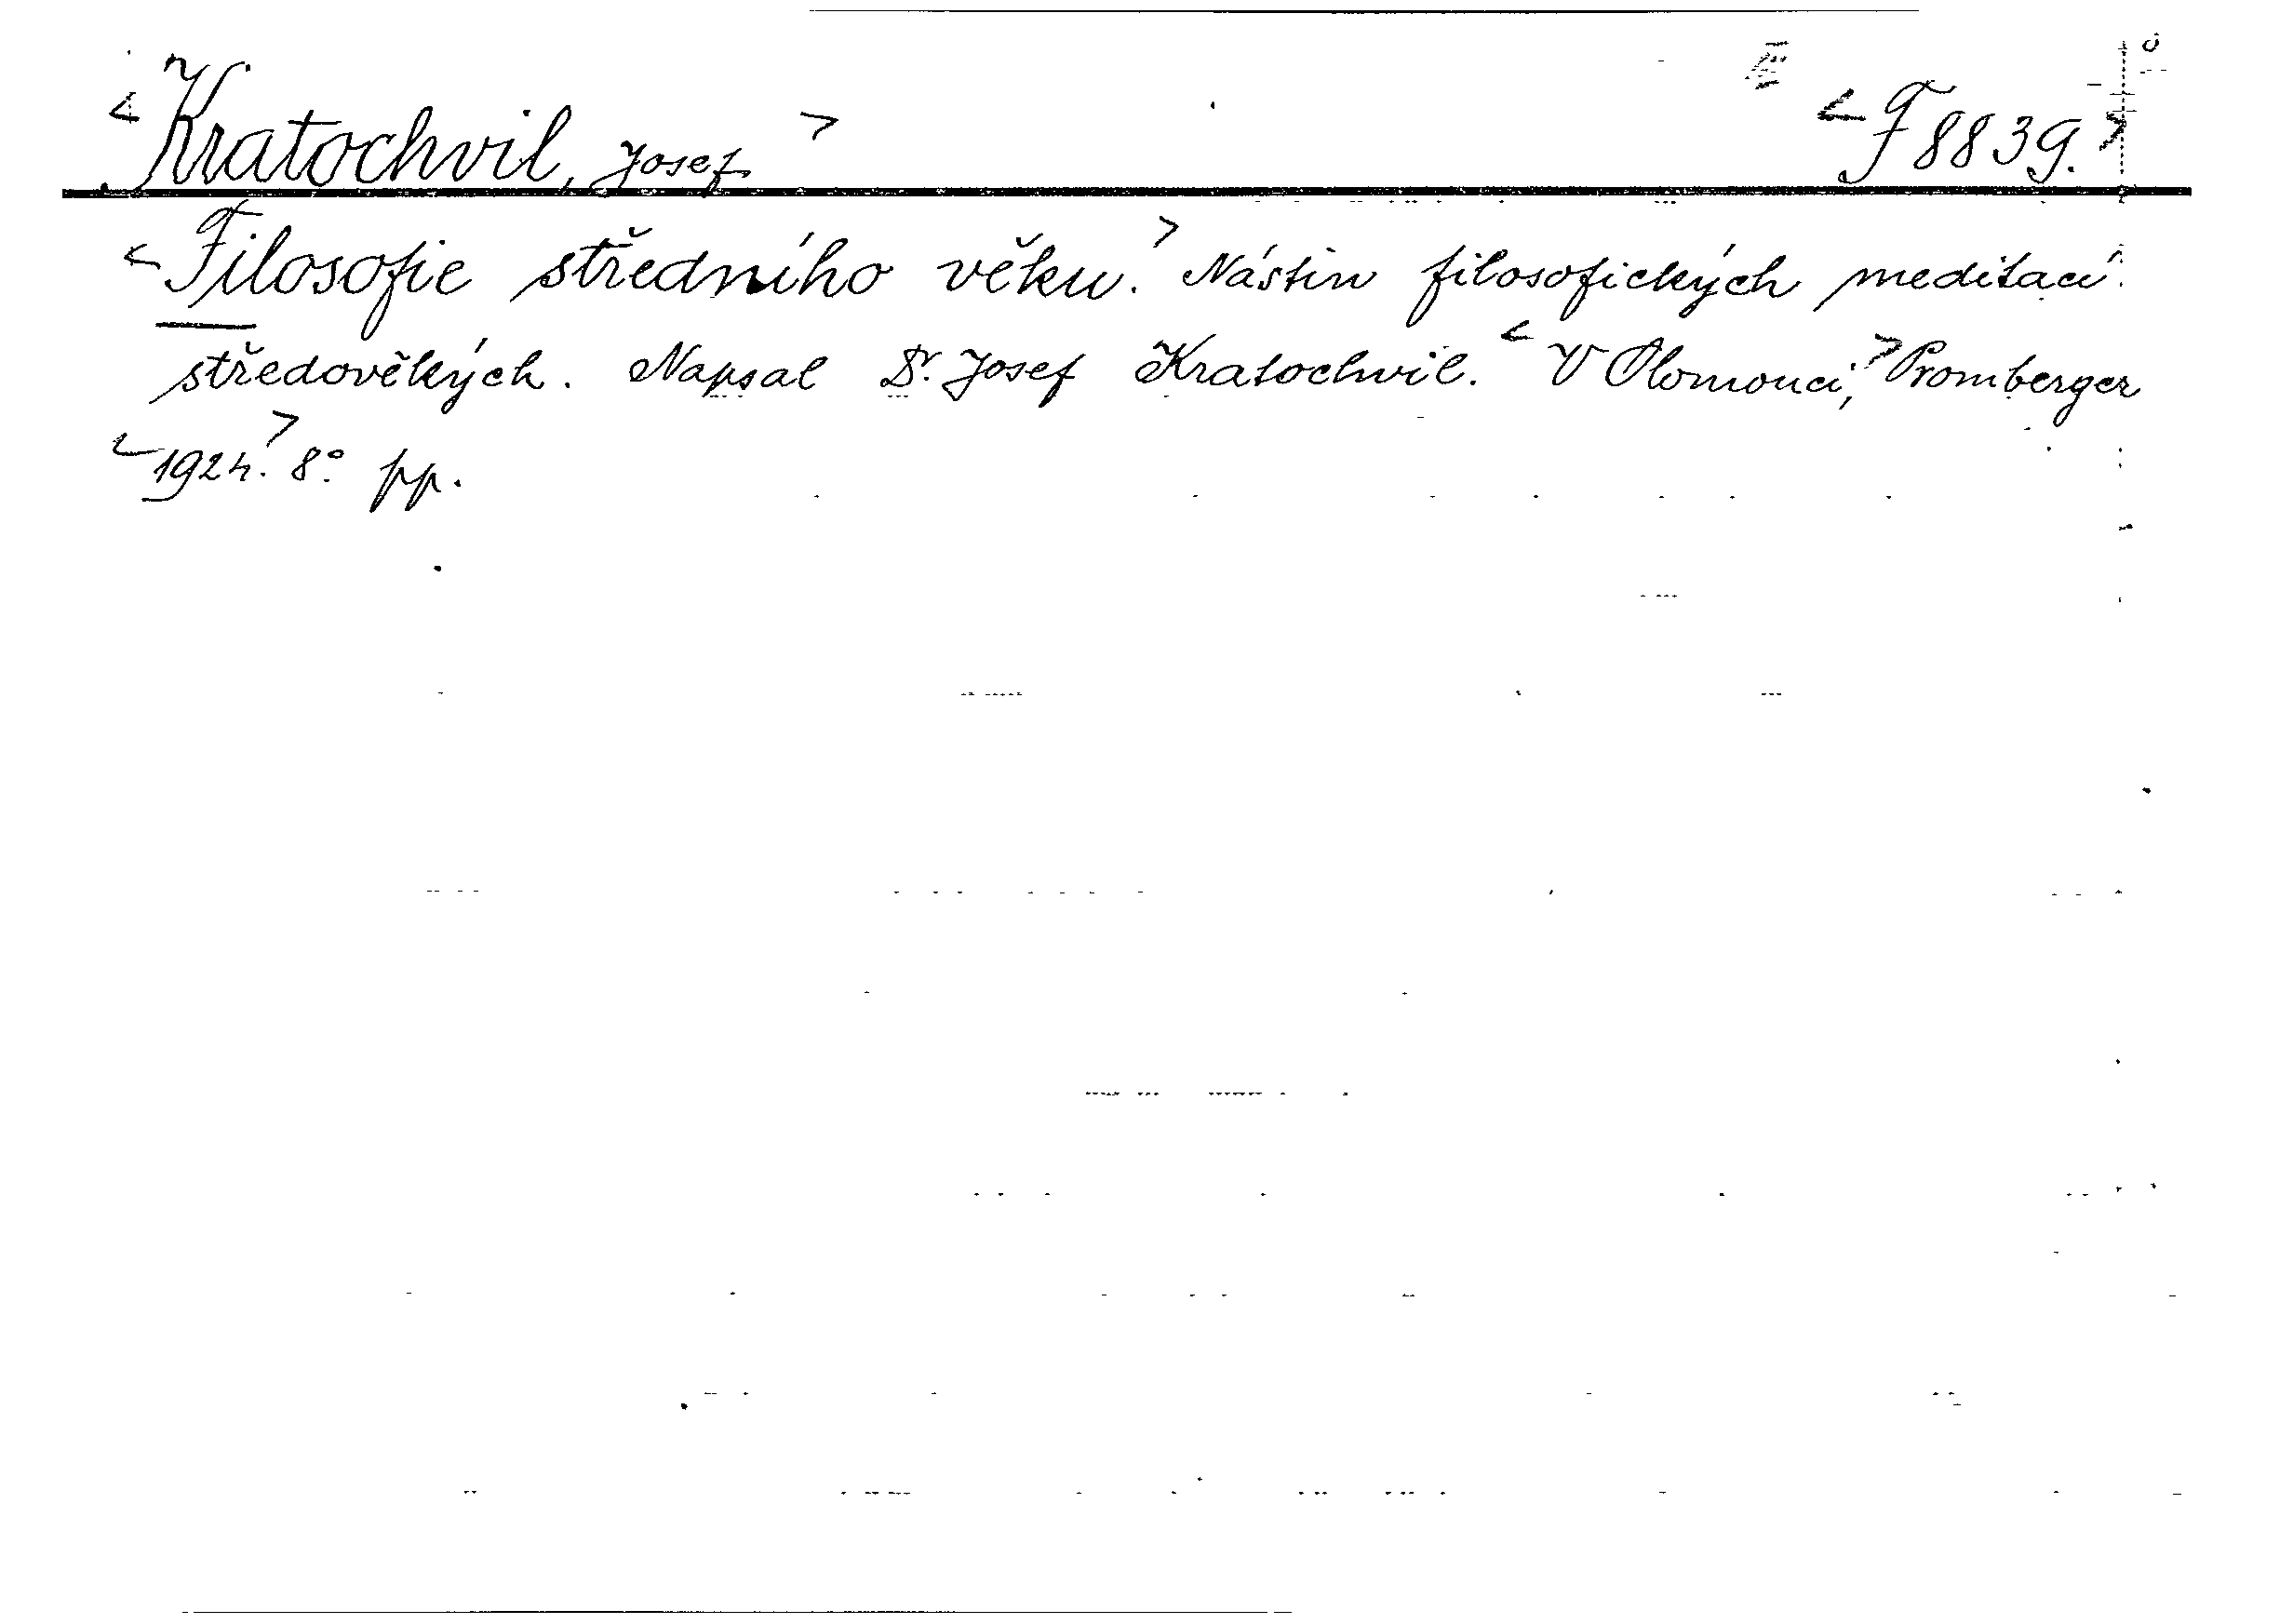 <Kratochvil, Josef> <F 8839.>
<Filosofie středního věku.> Nástin filosofických meditací
středověkých. Napsal Dr. Josef Kratochvil. <V Olomouci,> Promberger
<1924.> 8° pp.